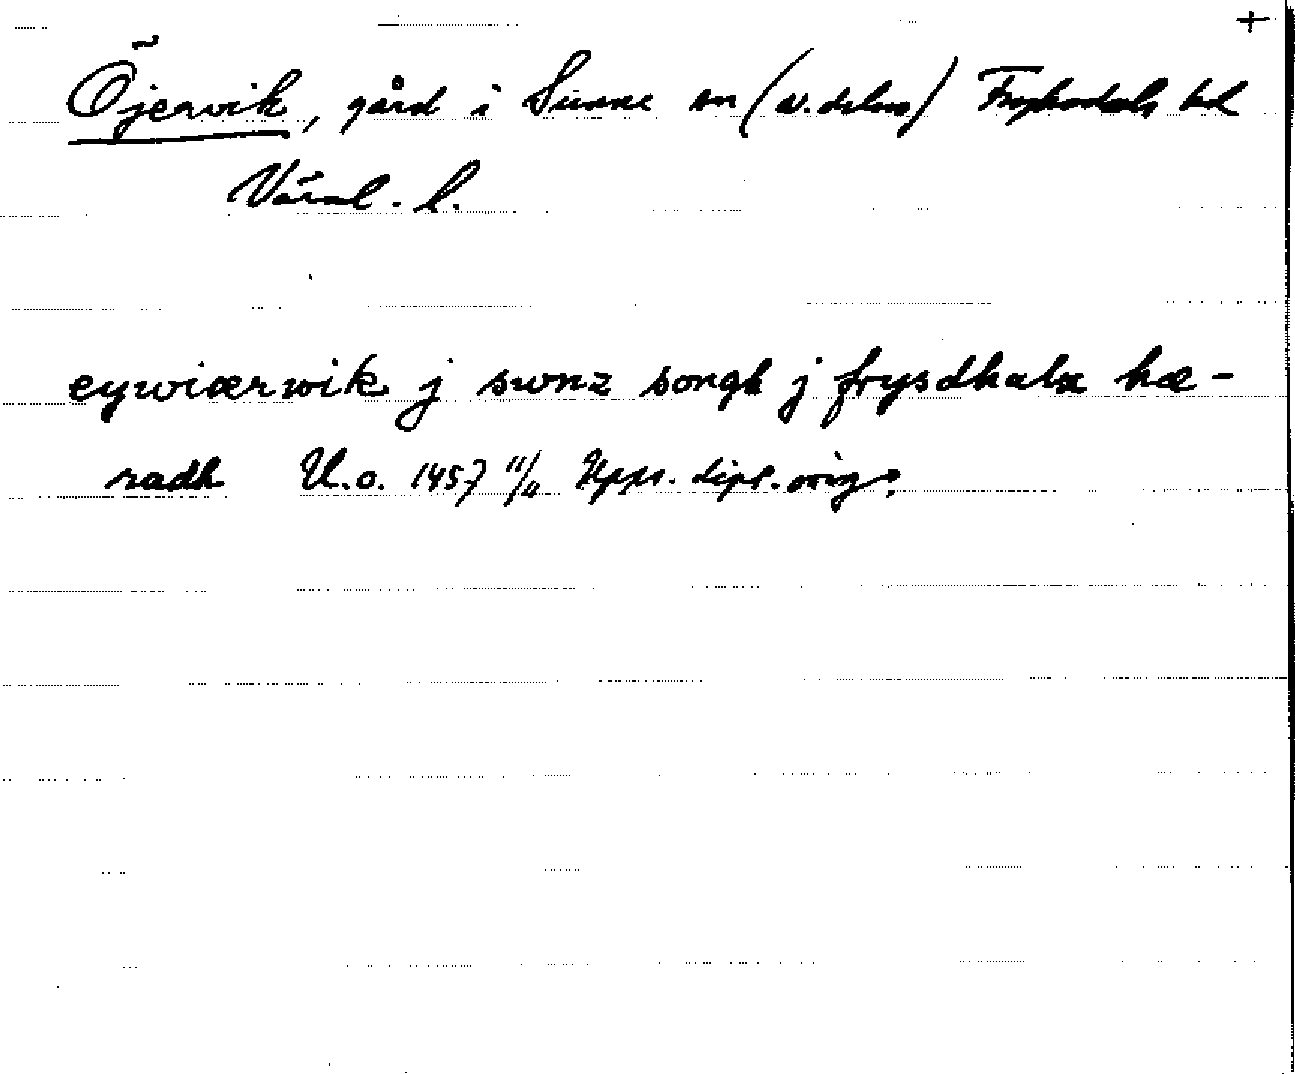 +
Öjervik, gård i Sunne sn (v. delen) Fryksdals hd
Värml. l.
eywiærwik j swnz songh j frysdhalx hæ-
radh U.o. 1457 11/11 Upps. dipl. orig.